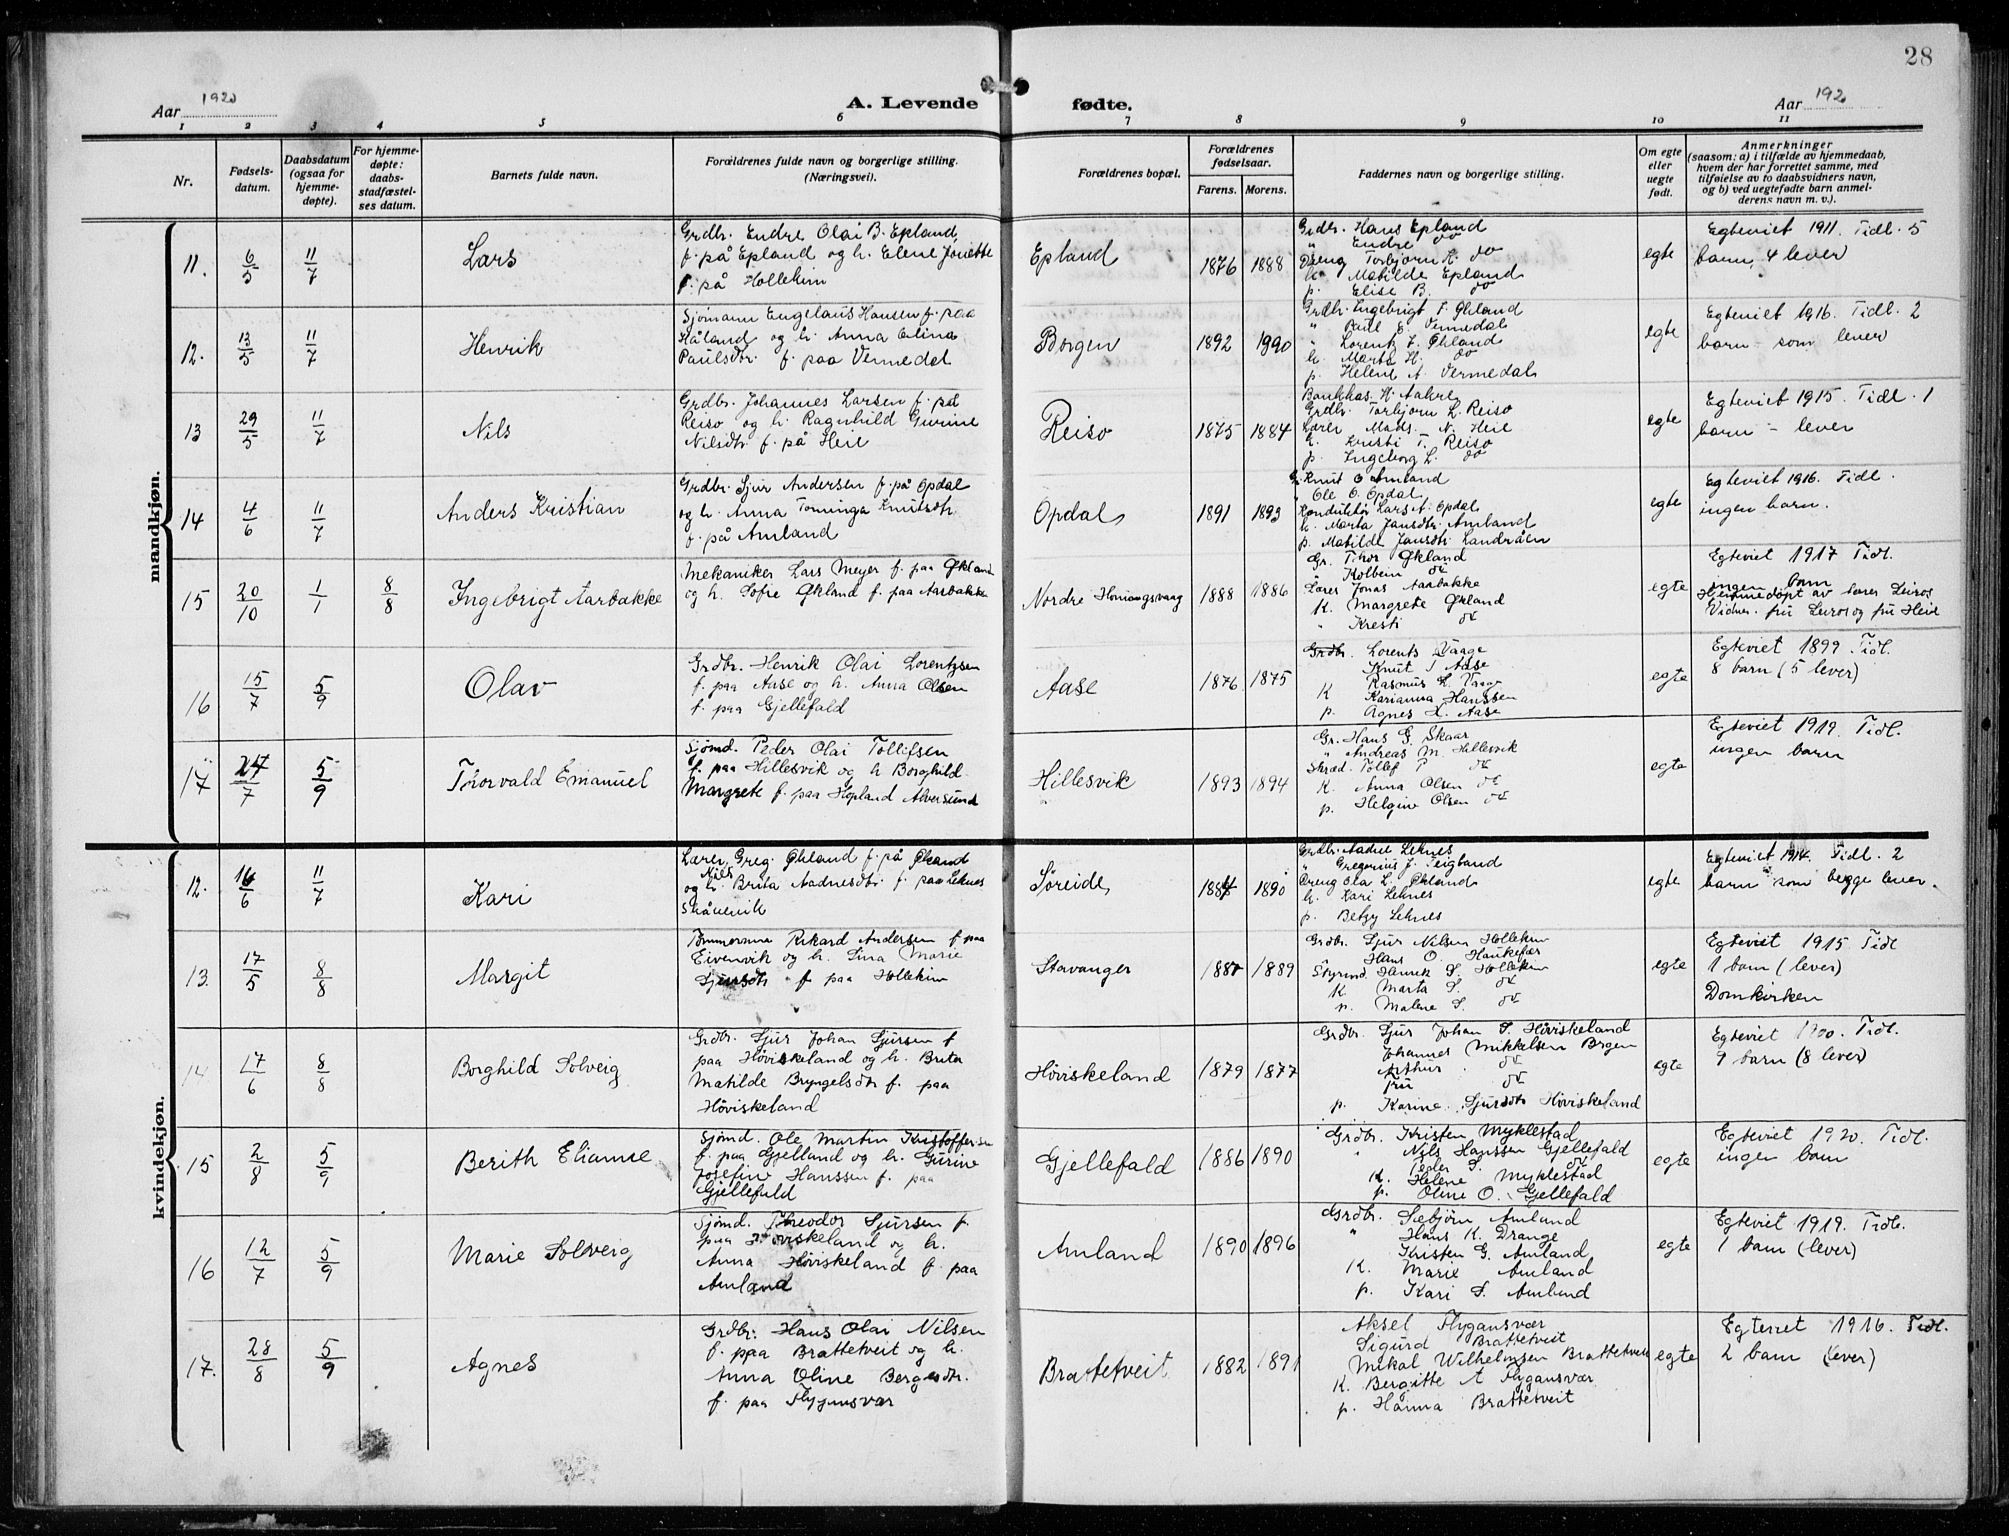 28
Aar 1920
A. Levende fødte.
Aar 192
1 2 3 4 5 6 7 8 9 10 11
Nr.
Fødsels-
datum.
Daabsdatum
(ogsaa for
hjemme-
døpte).
For hjemme-
døpte:
daabs-
stadfæstel-
ses datum.
Barnets fulde navn.
Forældrenes fulde navn og borgerlige stilling.
(Næringsvei).
Forældrenes bopæl.
Forældrenes
fødselsaar.
Farens. Morens.
Faddernes navn og borgerlige stilling.
Om egte
eller
uegte
født.
Anmerkninger
(saasom: a) i tilfælde av hjemmedaab,
hvem der har forrettet samme, med
tilføielse av to daabsvidners navn,
og b) ved uegtefødte barn anmel-
derens navn m. v.).
mandkjøn.
11. 6/5 11/7 Lars
Grdbr. Endre Olai B. Epland
f. på Epland og h. Elene Jonette
f. på Hollekim
Epland 1876 1888
Grdbr. Hans Epland
" Endre do
Dreng Torbjørn H. do
k. Matilde Epland
p. Elise B. do
egte
Egteviet 1911. Tidl. 5
barn, 4 lever
12. 13/5 11/7 Henrik
Sjømann Engelaus Hansen f. paa
Håland og h. Anna Elina
Paulsdtr. f. paa Vermedal
Borgen 1892 1990
Grdbr. Ingebrigt T. Økland
" Paul E. Vermedal
" Lorentz J. Økland
k. Marta H. do
p. Helene A. Vermedal
egte
Egteviet 1916. Tidl. 2
barn - som lever
13 29/5 11/7 Nils
Grdbr. Johannes Larsen f. på
Reisø og h. Ragnhild Gurine
Nilsdtr. f. på Heie
Reisø 1875 1884
Bankkas. H. Aakre
Grdbr. Torbjørn L. Reisø
Lærer Mats. N. Heie
k. Kristi T. Reisø
p. Ingeborg L. do
egte
Egteviet 1915. Tidl. 1
barn - lever
14 4/6 11/7 Anders Kristian
Grdbr. Sjur Andersen f. på Opdal
og h. Anna Tominga Knutsdtr.
f. på Amland
Opdal 1891 1893
G. Knut O Amland
" Ole O. Opdal
Konduktør Lars A. Opdal
k. Marta Jansdtr. Amland
p. Matilde Jansdtr. Landråen
egte
Egteviet 1916. Tidl.
ingen barn.
15 20/10 1/1 8/8 Ingebrigt Aarbakke
Mekaniker Lars Meyer f. paa Økland
og h. Sofie Økland f. paa Aarbakke
Nordre Honningsvaag 1888 1886
Gr. Thor Økland
" Kolbein do
Lærer Jonas Aarbakke
K. Margrete Økland
" Kresti do
egte
Egteviet 1917 Tidl.
ingen barn
Hjemmedøpt av lærer Leiros
Vidner. fru Leiros og fru Heie
16 15/7 5/9 Olav
Grdbr. Henrik Olai Lorentzsen
f. paa Aase og h. Anna Olsen
f. paa Gjellefald
Aase 1876 1875
Grdbr. Lorents Vaage
Knut S Aase
Rasmus L. Vaage
K Karianna Hanssen
p. Agnes L. Aase
egte
Egteviet 1899 Tidl.
8 barn (5 lever)
17 27/7 5/9 Thorvald Emanuel
Sjømd. Peder Olai Tollifsen
f. paa Hillesvik og h Borghild
Margrete f. paa Hopland Alversund
Hillesvik 1893 1894
Gr. Hans G. Skaar
" Andreas M. Hillesvik
Skræd. Tollef P do
K. Anna Olsen do
p. Helgine Olsen do
egte
Egteviet 1919. Tidl.
ingen barn
kvindekjøn.
12. 16/6 11/7 Kari
Lærer Greg. Økland f. på Økland
og h. Brita Aadnesdtr. f. paa Leknes
Nils
Skånevik
Søreide 1884 1890
Grdbr. Aadne Leknes
" Gregorius J. Teigland
Dreng Ola L. Økland
k. Kari Leknes
p. Betzy Leknes
egte
Egteviet 1914. Tidl. 2
barn som begge lever.
13. 17/5 8/8 Margit
Tømmermn Rikard Andersen f. paa
Eivenvik og h. Sina Marie
Sjursdtr f. paa Hollekim
Stavanger 1887 1889
Grdbr. Sjur Nilsen Hollekim
Hans O. Haukefær
Styrmd. Henrik S. Hollekim
K Marta S. do
p. Malene S. do
egte
Egteviet 1915. Tidl
1 barn (lever)
Domkirken
14 17/6 8/8 Borghild Solveig
Grdbr. Sjur Johan Sjursen f
paa Høviskeland og h. Brita
Matilde Bryngelsdtr f. paa
Høviskeland
Høviskeland 1879 1877
Grdbr. Sjur Johan S. Høviskeland
Johannes Mikkelsen Bergen
Arthur do
Fru do
p. Karine Sjursdtr Høviskeland
egte
Egteviet 1900. Tidl.
9 barn (8 lever)
15 2/8 5/9 Berith Elianne
Sjømd. Ole Martin Kristoffersen
f. paa Gjelland og h. Gurine
Josefine Hanssen f. paa
Gjellefald
Gjellefald 1886 1890
Grdbr. Kristen Myklestad
" Nils Hanssen Gjellefald
Peder S. do
K. Helene Myklestad
p. Oline O. Gjellefald
egte
Egteviet 1920. Tidl.
ingen barn
16 12/7 5/9 Marie Solveig
Sjømd. Theodor Sjursen f.
paa Høviskeland og h.
Anna Høviskeland f. paa
Amland
Amland 1890 1896
Grdbr. Sæbjørn Amland
" Hans K. Drange
Kristen G. Amland
K. Marie Amland
p. Kari S. Amland
egte
Egteviet 1919. Tidl.
1 barn (lever)
17. 28/8 5/9 Agnes
Grdbr. Hans Olai Nilsen
f. paa Brattetveit og h.
Anna Oline Bergesdtr.
f. paa Flygansvær
Brattetveit 1882 1891
Aksel Flygansvær
Sigurd Brattetveit
Mikal Wilhelmsen Brattetveit
K. Bergitte A Flygansvær
p. Hanna Brattetveit
egte
Egteviet 1916. Tidl.
2 barn (lever)